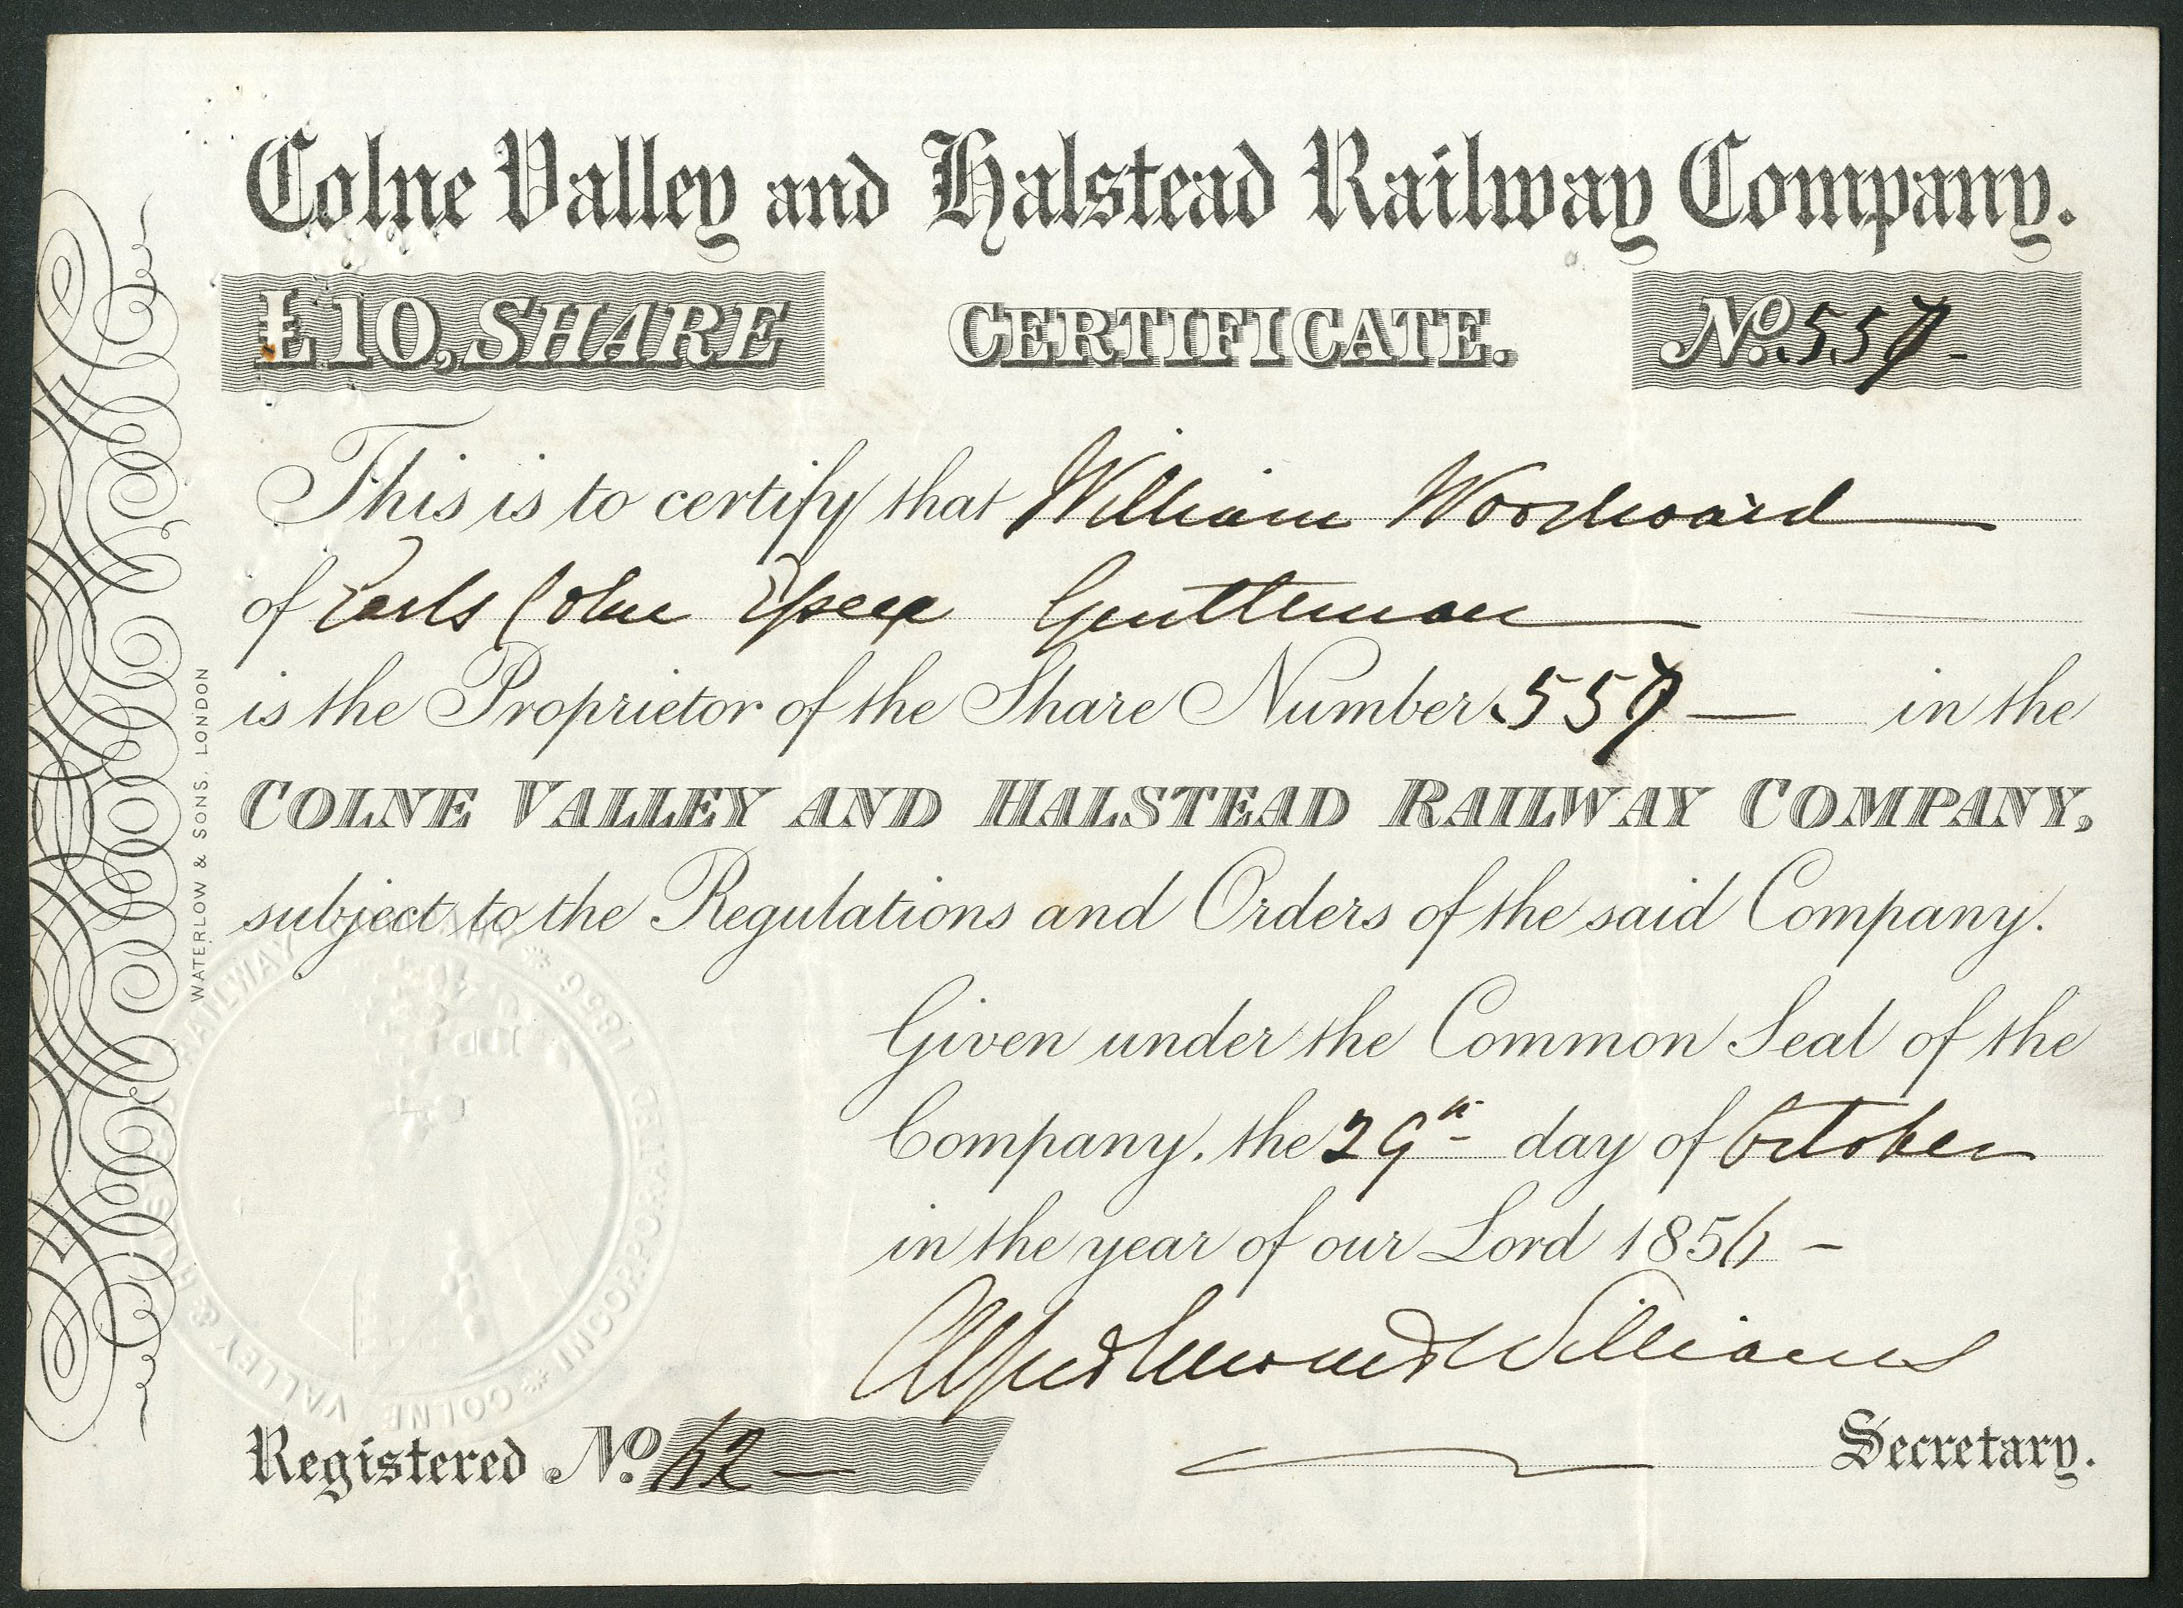 Colne Valley and Halstead Railway Company.
£10, SHARE CERTIFICATE. No. 557-
This is to certify that William Woodward
of Earls Colne Essex Gentleman
is the Proprietor of the Share Number 557 — in the
COLNE VALLEY AND HALSTEAD RAILWAY COMPANY,
subject to the Regulations and Orders of the said Company.
Given under the Common Seal of the
Company, the 29th day of October
in the year of our Lord 1856 -
Alfred Williams
Registered No. 62 — Secretary.
WATERLOW & SONS, LONDON
COLNE VALLEY & HALSTEAD RAILWAY COMPANY * INCORPORATED 1856 *